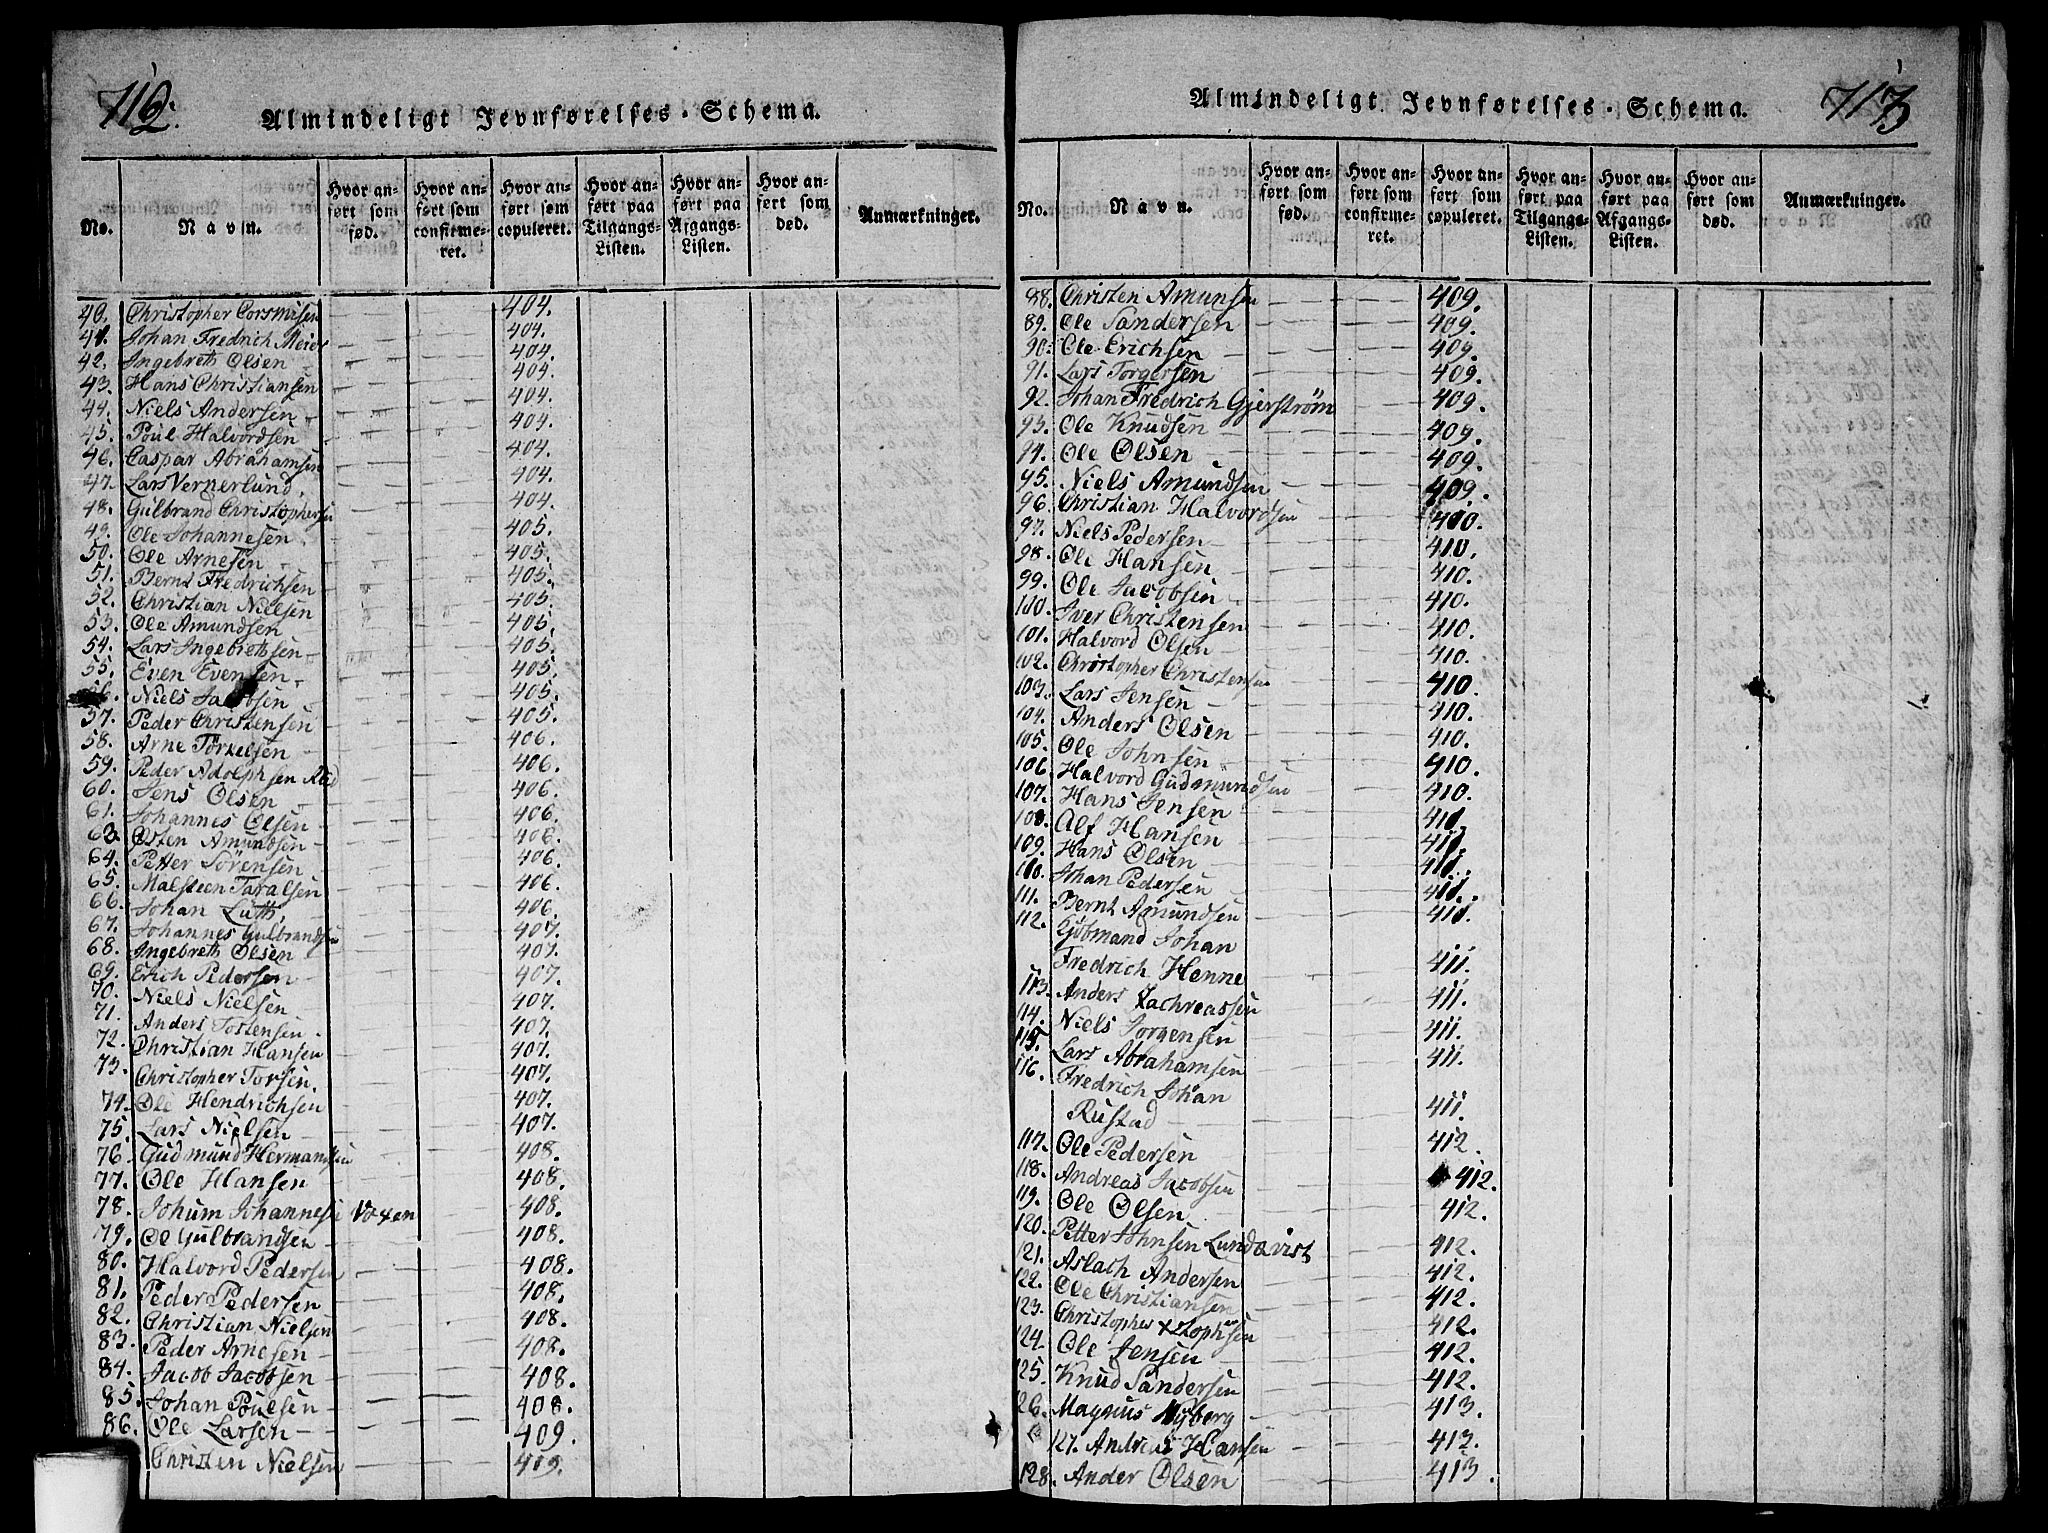 712.
Almindeligt Jevnførelses-Schema.
No. Navn. Hvor anført som fød. Hvor anført som confirmeret. Hvor anført som copuleret. Hvor anført paa Tilgangs-Listen. Hvor anført paa Afgangs-Listen. Hvor anført som død. Anmærkninger.
40. Christopher 404.
41. Johan Fredrich Meier 404.
42. Ingebreth Olsen 404.
43. Hans Christiansen 404.
44. Niels Andersen 404.
45. Poul Halvordsen 404.
46. Caspar Abrahamsen 404.
47. Lars Vernerlund. 404.
48. Gulbrand Christophersen 404.
49. Ole Johannesen 405.
50. Ole Arnesen 405.
51. Bernt Fredrichsen 405.
52. Christian Nielsen 405.
53. Ole Amundsen 405.
54. Lars Ingebretsen 405.
55. Even Evensen 405.
56. Niels Jacobsen 405.
57. Peder Christensen 405.
58. Arne Torkelsen 406.
59. Peder Adolphsen 406.
60. Jens Olsen 406.
61. Johannes Olsen 406.
63. Østen Amundsen 406.
64. Petter Sørensen 406.
65. Malsteen Taralsen 406.
66. Johan Luth 406.
67. Johannes Gulbrandsen 407.
68. Ingebreth Olsen 407.
69. Erich Pedersen 407.
70. Niels Nielsen 407.
71. Anders Tostensen 407.
72. Christian Hansen 407.
73. Christopher Torsen. 407.
74. Ole Hendrichsen 407.
75. Lars Nielsen 407.
76. Gudmund Hermandsen 408.
77. Ole Hansen 408.
78. Johum Johannesen Voxen 408.
79. Ol Gulbrandsen 408.
80. Halvord Pedersen 408.
81. Peder Pedersen 408.
82. Christian Nielsen 408.
83. Peder Arnesen 408.
84. Jacob Jacobsen 408.
85. Johan Poulsen 408.
86. Ole Larsen 409.
Christen Nielsen 409.
713
Almindeligt Jevnførelses-Schema.
No. Navn. Hvor anført som fød. Hvor anført som confirmeret. Hvor anført som copuleret. Hvor anført paa Tilgangs-Listen. Hvor anført paa Afgangs-Listen. Hvor anført som død. Anmærkninger.
88. Christen Amunsen 409.
89. Ole Sandersen 409.
90. Ole Erichsen 409.
91. Lars Torgersen 409.
92. Johan Fredrich Gjerström 409.
93. Ole Knudsen 409.
94. Ole Olsen 409.
95. Niels Amundsen 409.
96. Christian Halvordsen 410.
97. Niels Pedersen 410.
98. Ole Hansen 410.
99. Ole Jacobsen 410.
100. Iver Christensen 410.
101. Halvord Olsen 410.
102. Christopher Christensen 410.
103. Lars Jensen 410.
104. Anders Olsen 410.
105. Ole Johnsen 410.
106. Halvord Gudmundsen 410.
107. Hans Jensen 411.
108. Alf Hansen 411.
109. Hans Olsen 411.
110. Johan Pedersen 411.
111. Bernt Amundsen 411.
112. Kjøbmand Johan
Fredrich Henne 411.
113. Anders Zachreassen 411.
114. Niels Jørgensen 411.
115. Lars Abrahamsen 411.
116. Fredrich Johan
Rustad 411.
117. Ole Pedersen 412.
118. Andreas Jacobsen 412.
119. Ole Olsen 412.
120. Petter Johnsen Lundqvist 412.
121. Aslach Andersen 412.
122. Ole Christiansen 412.
123. Christopher 412.
124. Ole Jensen 412.
125. Knud Sandersen 412.
126. Magnus Nyberg 413.
127. Andreas Hansen 413.
128. Ander Olsen 413.